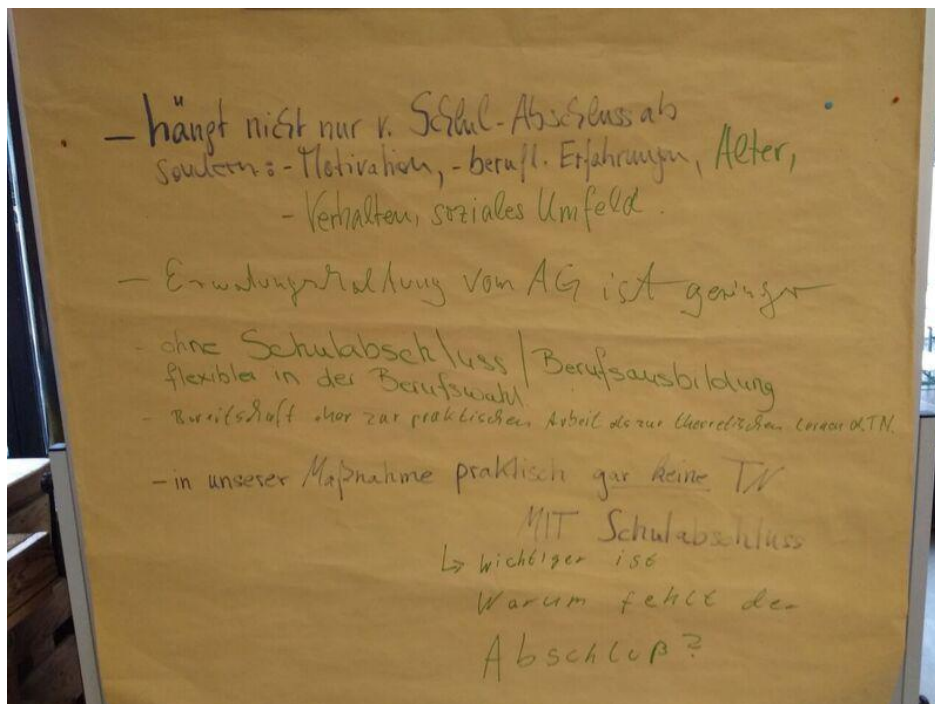 – hängt nicht nur v. Schul-Abschluss ab
sondern: - Motivation, - berufl. Erfahrungen, Alter,
- Verhalten, soziales Umfeld.
– Erwartungshaltung vom AG ist geringer
- ohne Schulabschluss / Berufsausbildung
flexibler in der Berufswahl
- Bereitschaft eher zur praktischen Arbeit als zur theoretischen Lernen d. TN.
– in unserer Maßnahme praktisch gar keine TN
MIT Schulabschluss
↳ wichtiger ist
Warum fehlt der
Abschluß?